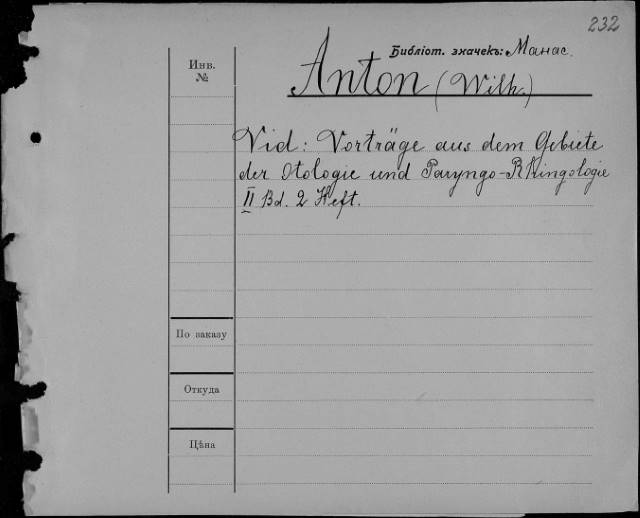 232
Библіот. значекъ: Манас.
Инв. №
Anton (Wilh.)
Vid: Vorträge aus dem Gebiete
der Otologie und Paryngo-Rhingologie
II Bd. 2 Heft.
По заказу
Откуда
Цѣна